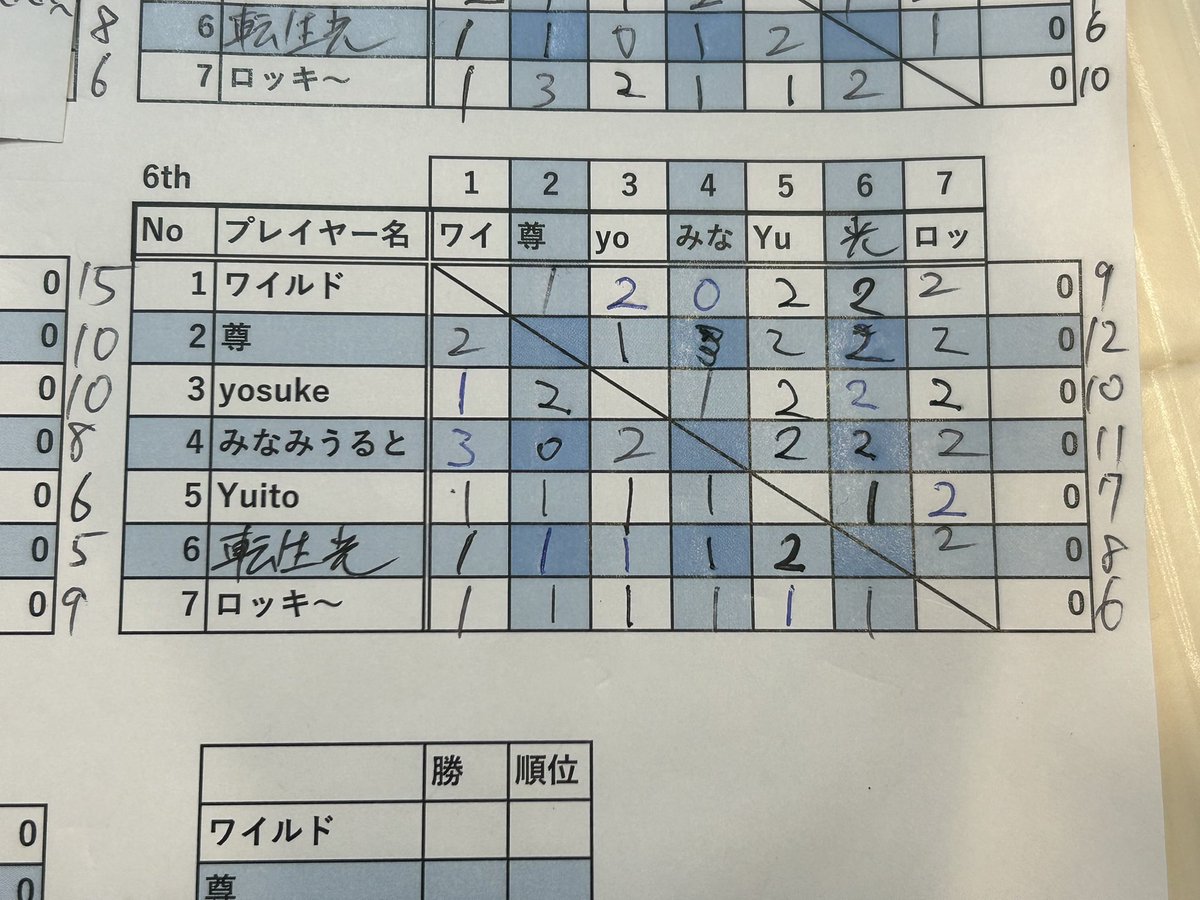 8 6 転生光 1 1 0 1 2 1 0 6
6 7 ロッキ～ 1 3 2 1 1 2 0 10
6th 1 2 3 4 5 6 7
No プレイヤー名 ワイ 尊 yo みな Yu 光 ロッ
0 15 1 ワイルド 1 2 0 2 2 2 0 9
0 10 2 尊 2 1 2 2 2 0 12
0 10 3 yosuke 1 2 1 2 2 2 0 10
0 8 4 みなみうると 3 0 2 2 2 2 0 11
0 6 5 Yuito 1 1 1 1 1 2 0 7
0 5 6 転生光 1 1 1 1 2 2 0 8
0 9 7 ロッキ～ 1 1 1 1 1 1 0 6
勝 順位
0 ワイルド
0 尊